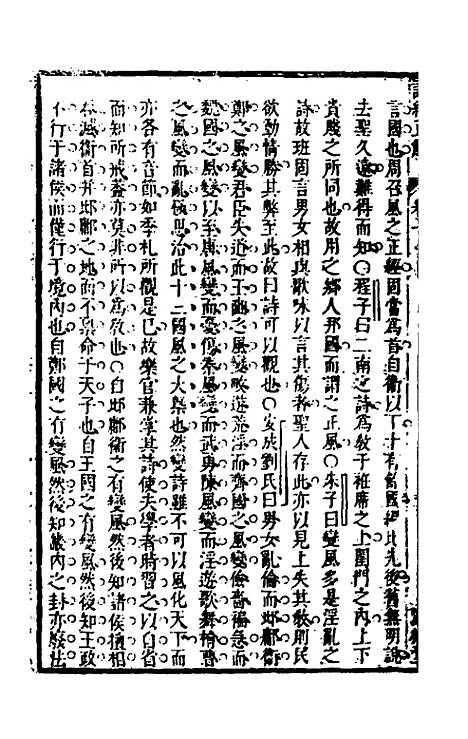 言國也周召風之正經固當為首自衛以下十有餘國編比先後舊無明說
去聖久遠難得而知○程子曰二南之詩為教于衽席之上閨門之內上下
貴賤之所同也故用之鄉人邦國而謂之正風○朱子曰變風多是淫亂之
詩故班固言男女相與歌咏以言其傷者聖人存此亦以見上失其教則民
欲動情勝其弊至此故曰詩可以觀也○安成劉氏曰男女亂倫而邶鄘衛
鄭之風變君臣失道而王豳之風變畋遊荒淫而齊國之風變儉嗇褊急而
魏國之風變以至唐風變而憂傷秦風變而武勇陳風變而淫遊歌舞檜曹
之風變而亂極思治此十二國風之大槩也然變詩雖不可以風化天下而
亦各有音節如季札所觀是已故樂官兼掌其詩使夫學者時習之以自省
而知所戒蓋亦莫非所以為教也○自邶鄘衛之有變風然後知諸侯擅相
吞滅衛首并邶鄘之地而不稟命于天子也自王國之有變風然後知王政
不行于諸侯而僅行于境內也自鄭國之有變風然後知畿內之封亦廢法